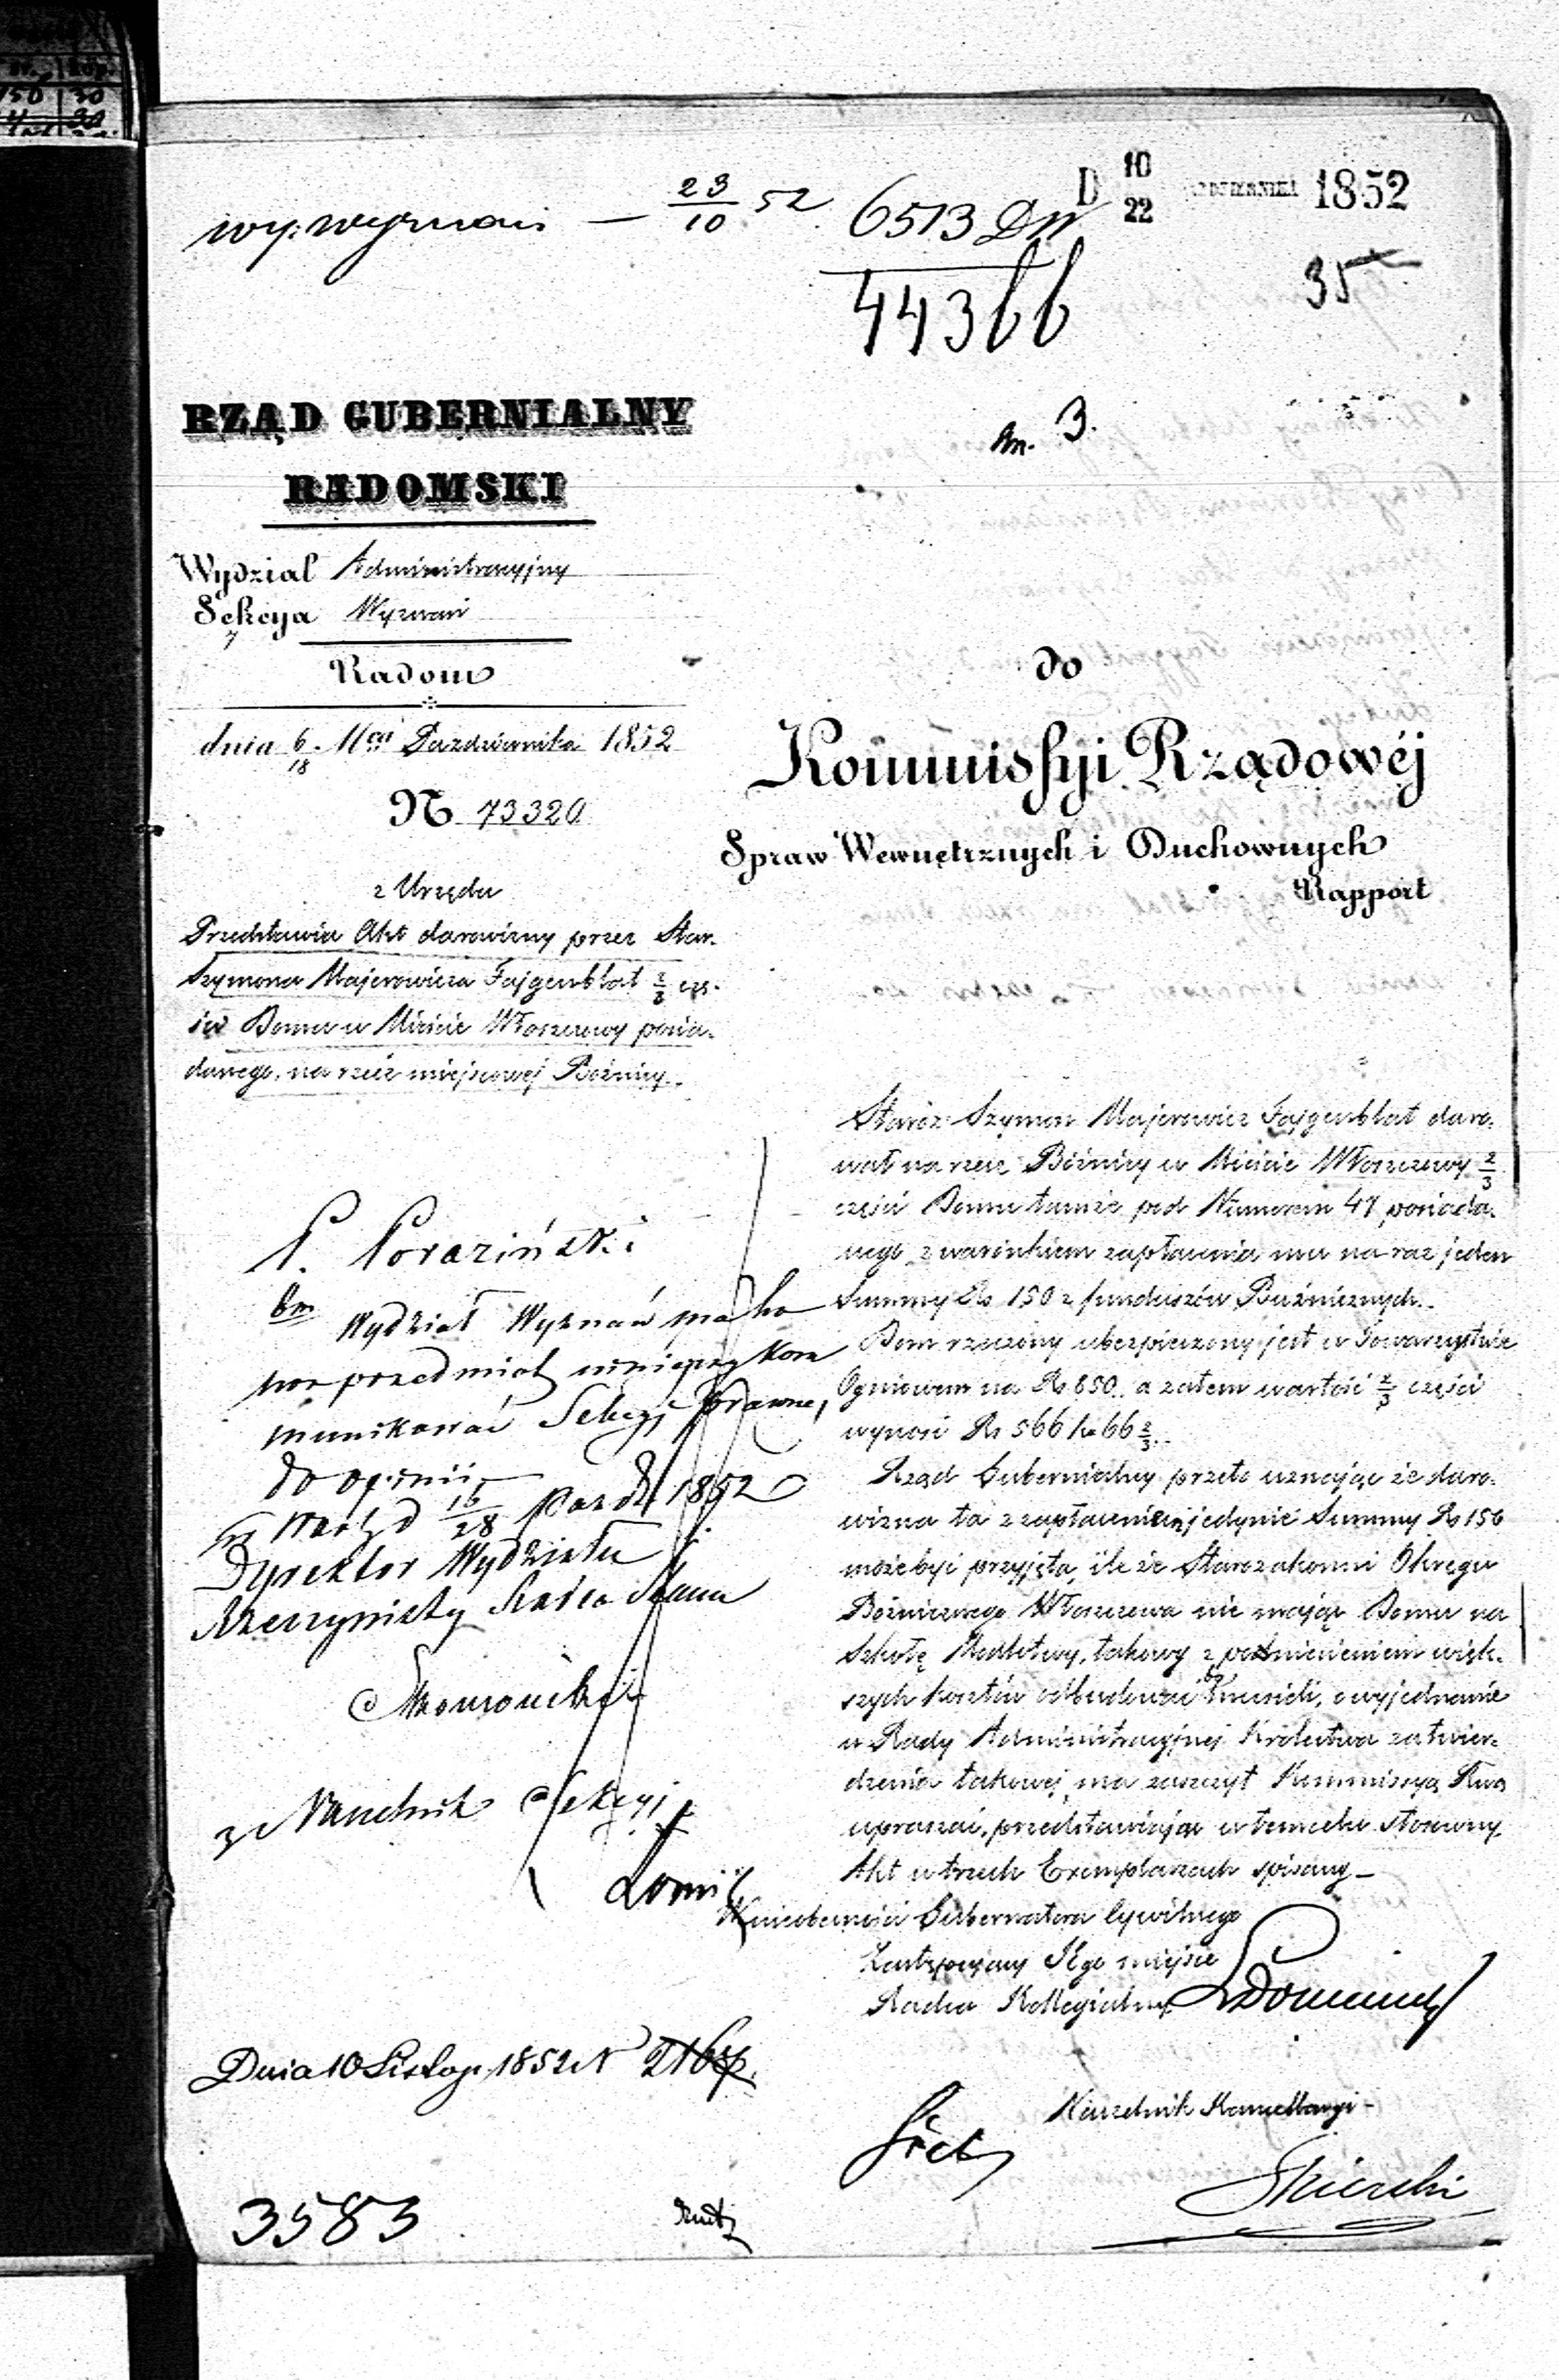 D 10/22 PAZDZIERNIKA 1852
wy: wyznań — 23/10 52 6513 DW
44366
35
m. 3.
RZĄD GUBERNIALNY
RADOMSKI
Wydział Administracyjny
Sekcya Wyznań
Radom
dnia 6/18 Października 1852
N 73320
z Urzędu
Przedstawia Akt darowizny przez Star.
Szymona Majerowicza Fajgenblat 2/3 czę-
ści Domu w Mieście Włoszczowy posia-
danego, na rzecz miejscowej Bóżnicy.
do
Kommissyi Rządowéj
Spraw Wewnętrznych i Duchownych
Rapport
Staroz: Szymon Majerowicz Fajgenblat daro-
wał na rzecz Bóżnicy w Mieście Włoszczowy 2/3
części Domu tamże pod Numerem 47 posiada-
nego z warunkiem zapłacenia mu na raz jeden
Summy Rs 150 z funduszów Bużnicznych.
Dom rzeczony ubezpieczony jest w Towarzystwie
Ogniowem na Rs 850. a zatem wartość 2/3 części
wynosi Rs 566 ko 66 2/3.
Rząd Gubernialny przeto uznając że daro-
wizna ta z zapłaceniem jedynie Summy Rs 150
może być przyjęta, ile że Starozakonni Okręgu
Bóżnicznego Włoszczowa nie mając Domu na
Szkołę Modlitwy, takowy z poniesieniem więk-
szych kosztów odbudować by musieli, o wyjednanie
w Rady Administracyjnej Królestwa zatwier-
dzenia takowej, ma zaszczyt Kommissyą Rwą
upraszać, przedstawiając w temcelu stosowny
Akt w trzech Exemplarzach spisany –
W nieobecności Gubernatora Cywilnego
Zastępujący Jego miejsce
Radca Kollegialny
Naczelnik Kancellaryi –
P. Poraziński
Wydział Wyznań ma ho
nor przedmiot niniejszy kom
munikować Sekcyi Prawnej
do opinii –
Warsz d 16/28 Paźdz 1852
Dyrektor Wydziału
Rzeczywisty Radca Stanu
za Naczelnik Sekcyi
Dnia 10 Listop. 1852 N
3583